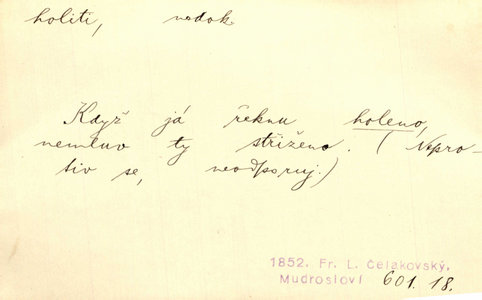 holiti, nedok
Když já řeknu holeno,
nemluv ty střiženo. (Nepro-
tiv se, neodporuj.)
1852. Fr. L. Čelakovský,
Mudrosloví 601. 18.